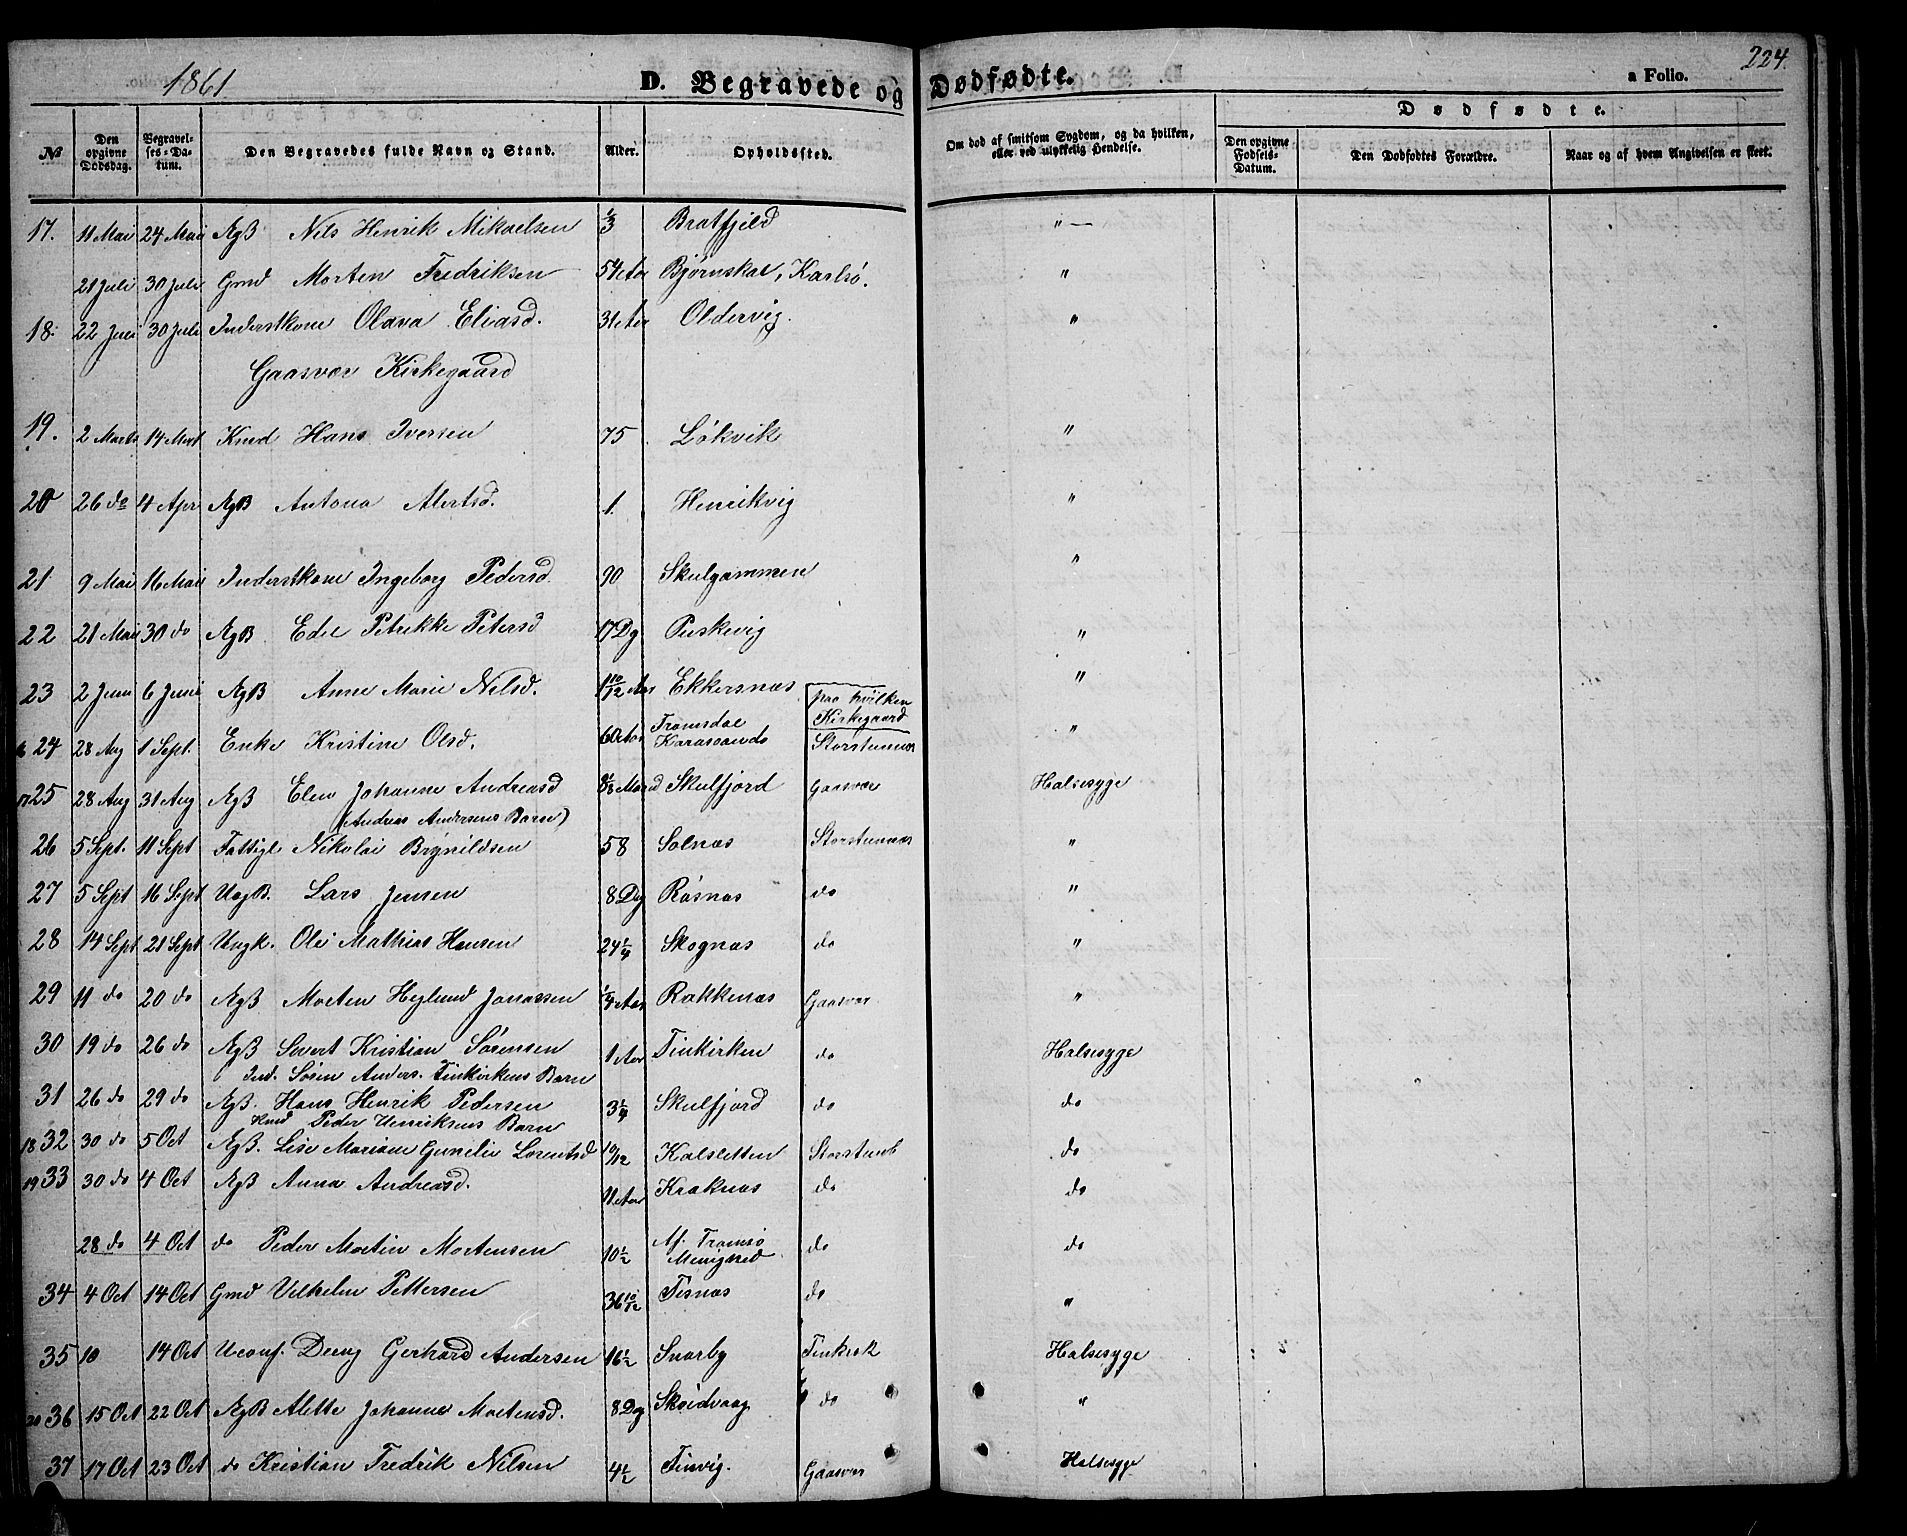 1861
D. Begravede og Dødfødte.
a Folio.
224.
Dødfødte.
№
Den opgivne Dødsdag.
Begravelses-Datum.
Den Begravedes fulde Navn og Stand.
Alder.
Opholdssted.
Om død af smitsom Sygdom, og da hvilken, eller ved ulykkelig Hendelse.
Den opgivne Fødsels-Datum.
Den Dødfødtes Forældre.
Naar og af hvem Angivelsen er skeet.
17. 11 Mai 24 Mai ÆgB Nils Henrik Mikaelsen 1/3 Bratfjeld " —
21 Juli 30 Juli Gmd Morten Fredriksen 54 Aar Bjørnskar, Karlsø. "
18. 22 Juli 30 Juli Inderstkone Olava Eliasd. 31 Aar Oldervig. "
Gaasvær Kirkegaard
19. 2 Marts 14 Mart Kmd Hans Iversen 75 Løkvik "
20 26 do 4 Apr ÆgB Antona Alertsd. 1. Henrikvig "
21 9 Mai 16 Mai Inderstkone Ingeborg Pedersd. 90 Skulgammen "
22 21 Mai 30 do ÆgB Edel Petrikke Petersd 17 Dg "
23 2 Juni 6 Juni ÆgB Anne Marie Nilsd. 1 10/12 Aar Ekkersnæs "
paa hvilken Kirkegaard
24 28 Aug 1 Sept. Enke Kristine Olsd. 60 Aar Tromsdal Storstennæs "
17 25 28 Aug 31 Aug ÆgB Elen Johanne Andreasd Skulfjord Gaasvær Halsesyge
(Andreas Andersens Barn)
26 5 Sept. 11 Sept Fattigl Nikolai Brynildsen 58 Solnæs Storstennæs "
27 5 Sept 16 Sept UægB. Lars Jensen 8 Dg Røsnæs do "
28 14 Sept. 21 Sept Ungk. Ole Mathias Hansen 24 1/4 Skognæs do "
29 11 do 20 do ÆgB Morten Heglund Jonassen 1/4 Aar Rakkenæs Gaasvær "
30 19 do 26 do ÆgB Sivert Kristian Sørensen 1 Aar Finkirken do Halsesyge
Ind. Søren Anders. Finkirkens Barn
31 26 do 29 do ÆgB. Hans Henrik Pedersen 3 1/4 Skulfjord do do
Kmd Peder Henriksens Barn
18 32 30 do 5 Oct ÆgB. Lise Marian Gunelie Lorentsd 10/12 Kalsletten do
19 33 30 do 4 Oct ÆgB Anna Andreasd. 11 Aar Kraknæs do do
28 do 4 Oct do Peder Mortin Mortensen 10 1/2 Af Tromsø Menighed do do
34 4 Oct 14 Oct Gmd Vilhelm Pettersen 36 10/12 Tisnæs do "
35 10 14 Oct Uconf. Gerhard Andersen 16 1/2 Snarby Finkrok Halsesyge
20 36 15 Oct 22 Oct ÆgB Alette Johanne Mortensd. 8 Dg Skeidvaag do "
37 17 Oct 23 Oct do Kristian Fredrik Nilsen 4 1/2 Finvig. Gaasvær Halsesyge